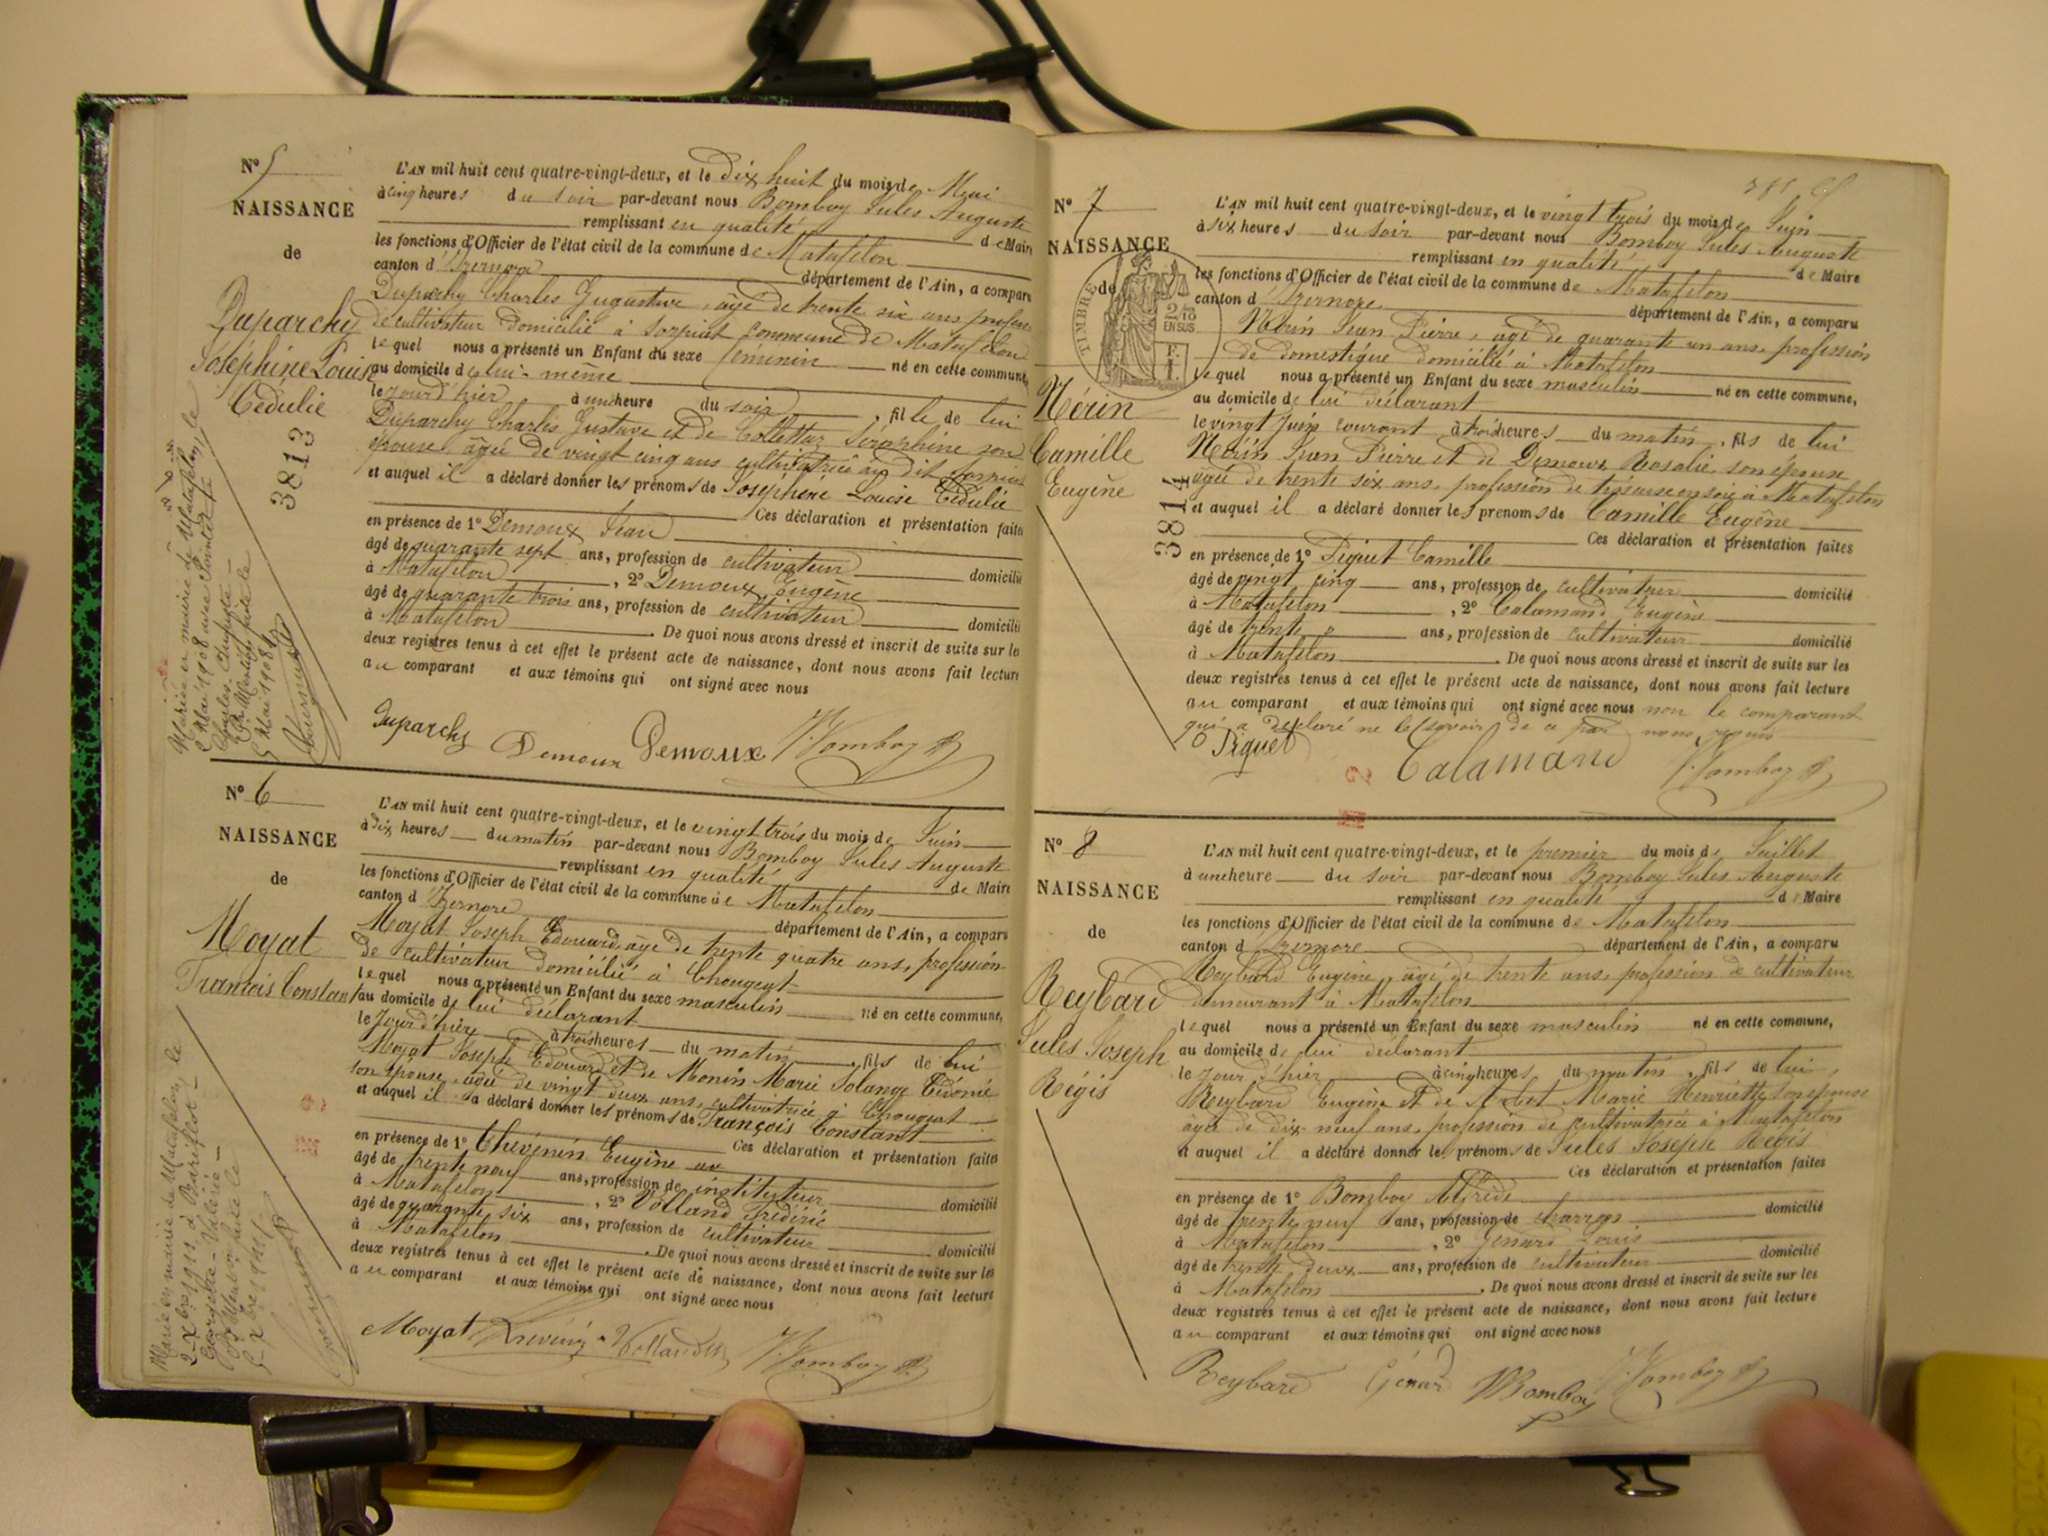 N° 5
NAISSANCE
de
Duparchy
Joséphine Louise
Cédulie
3813
Mariée en mairie de Matafelon le
Mai 1908 avec
L'AN mil huit cent quatre-vingt-deux, et le dix huit du mois de Mai
à cinq heures du soir par-devant nous Bomboy Jules Auguste
remplissant en qualité de Maire
les fonctions d'Officier de l'état civil de la commune de Matafelon
canton d'Izernore département de l'Ain, a comparu
Duparchy Charles Gugustave, âgé de trente six ans, profession
de cultivateur domicilié à Corpiat commune de Matafelon
lequel nous a présenté un Enfant du sexe féminin né en cette commune,
au domicile de lui-même
le jourd'hier à une heure du soir, fille de lui
Duparchy Charles Gustave et de Collettaz Séraphine son
épouse, âgée de vingt cinq ans cultivatrice au dit Corpiat
et auquel il a déclaré donner les prénoms de Joséphine Louise Cédulie
Ces déclaration et présentation faites
en présence de 1° Demoux Jean
âgé de quarante sept ans, profession de cultivateur domicilié
à Matafelon, 2° Demoux Eugène
âgé de quarante trois ans, profession de cultivateur domicilié
à Matafelon. De quoi nous avons dressé et inscrit de suite sur les
deux registres tenus à cet effet le présent acte de naissance, dont nous avons fait lecture
au comparant et aux témoins qui ont signé avec nous
Duparchy Demoux Demoux J. Bomboy
N° 6
NAISSANCE
de
Moyat
François Constant
Marié en mairie de Matafelon le
L'AN mil huit cent quatre-vingt-deux, et le vingt trois du mois de Juin
à dix heures du matin par-devant nous Bomboy Jules Auguste
remplissant en qualité de Maire
les fonctions d'Officier de l'état civil de la commune de Matafelon
canton d'Izernore département de l'Ain, a comparu
Moyat Joseph Edouard, âgé de trente quatre ans, profession
de cultivateur domicilié à Chougeat
lequel nous a présenté un Enfant du sexe masculin né en cette commune,
au domicile de lui déclarant
le jourd'hier à trois heures du matin, fils de lui
Moyat Joseph Edouard et de Monin Marie Solange Cidonie
son épouse, âgée de vingt deux ans, cultivatrice à Chougeat
et auquel il a déclaré donner les prénoms de François Constant
Ces déclaration et présentation faites
en présence de 1° Chévenin Eugène
âgé de trente neuf ans, profession de instituteur domicilié
à Matafelon, 2° Volland Frédéric
âgé de quarante six ans, profession de cultivateur domicilié
à Matafelon. De quoi nous avons dressé et inscrit de suite sur les
deux registres tenus à cet effet le présent acte de naissance, dont nous avons fait lecture
au comparant et aux témoins qui ont signé avec nous
Moyat Chévenin Volland J. Bomboy
N° 7
NAISSANCE
de
TIMBRE
2/10
EN SUS
Nérin
Camille
Eugène
3814
L'AN mil huit cent quatre-vingt-deux, et le vingt trois du mois de Juin
à six heures du soir par-devant nous Bomboy Jules Auguste
remplissant en qualité de Maire
les fonctions d'Officier de l'état civil de la commune de Matafelon
canton d'Izernore département de l'Ain, a comparu
Nérin Jean Pierre, âgé de quarante un ans, profession
de domestique domicilié à Matafelon
lequel nous a présenté un Enfant du sexe masculin né en cette commune,
au domicile de lui déclarant
le vingt Juin courant à trois heures du matin, fils de lui
Nérin Jean Pierre et de Demoux Rosalie, son épouse
âgée de trente six ans, profession de tisseuse en soie à Matafelon
et auquel il a déclaré donner les prénoms de Camille Eugène
Ces déclaration et présentation faites
en présence de 1° Piguet Camille
âgé de vingt cinq ans, profession de cultivateur domicilié
à Matafelon, 2° Calamand Eugène
âgé de trente ans, profession de cultivateur domicilié
à Matafelon. De quoi nous avons dressé et inscrit de suite sur les
deux registres tenus à cet effet le présent acte de naissance, dont nous avons fait lecture
au comparant et aux témoins qui ont signé avec nous non le comparant
qui a déclaré ne le savoir de ce par nous requis
Piguet Calamand J. Bomboy
N° 8
NAISSANCE
de
Reybard
Jules Joseph
Régis
L'AN mil huit cent quatre-vingt-deux, et le premier du mois de Juillet
à une heure du soir par-devant nous Bomboy Jules Auguste
remplissant en qualité de Maire
les fonctions d'Officier de l'état civil de la commune de Matafelon
canton d'Izernore département de l'Ain, a comparu
Reybard Eugène, âgé de trente ans, profession de cultivateur
demeurant à Matafelon
lequel nous a présenté un Enfant du sexe masculin né en cette commune,
au domicile de lui déclarant
le jour d'hier à cinq heures du matin, fils de lui
Reybard Eugène et de Marie Henriette son épouse
âgée de dix neuf ans, profession de cultivatrice à Matafelon
et auquel il a déclaré donner les prénoms de Jules Joseph Régis
Ces déclaration et présentation faites
en présence de 1° Bomboy Alfrède
âgé de trente neuf ans, profession de charron domicilié
à Matafelon, 2° Génard Louis
âgé de trente deux ans, profession de cultivateur domicilié
à Matafelon. De quoi nous avons dressé et inscrit de suite sur les
deux registres tenus à cet effet le présent acte de naissance, dont nous avons fait lecture
au comparant et aux témoins qui ont signé avec nous
Reybard Génard Bomboy J. Bomboy